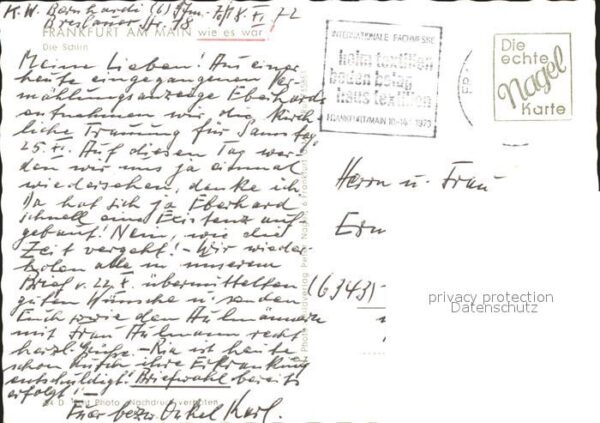 K. W. Bernhardi (6) Ffm. 70, 8. XI. 72
Breslauer Str. 78
FRANKFURT AM MAIN wie es war
Die Schirn
Meine Lieben! Aus einer
heute eingegangenen Ver-
mählungsanzeige Eberhards
entnehmen wir, die kirch-
liche Trauung für Samstag
25. XI. Auf diesen Tag wer-
den wir uns ja einmal
wiedersehen, denke ich.
Da hat sich ja Eberhard
schnell eine Existenz auf-
gebaut! Nein, wie die
Zeit vergeht! - Wir wieder-
holen alle in unserem
Brief v. 22. X. übermittelten
guten Wünsche u. senden
Euch sowie den
mit Frau recht
herzl. Grüße. - Ria ist heute
schon durch ihre Erkrankung
entschuldigt! Briefwahl bereits
erfolgt! -
Nachdruck verboten
Euer bezw. Onkel Karl.
INTERNATIONALE FACHMESSE
heim textilien
boden belag
haus textilien
FRANKFURT/MAIN 10.-14.1.1973
Die
echte
Nagel
Karte
Herrn u. Frau
(6343)
privacy protection
Datenschutz